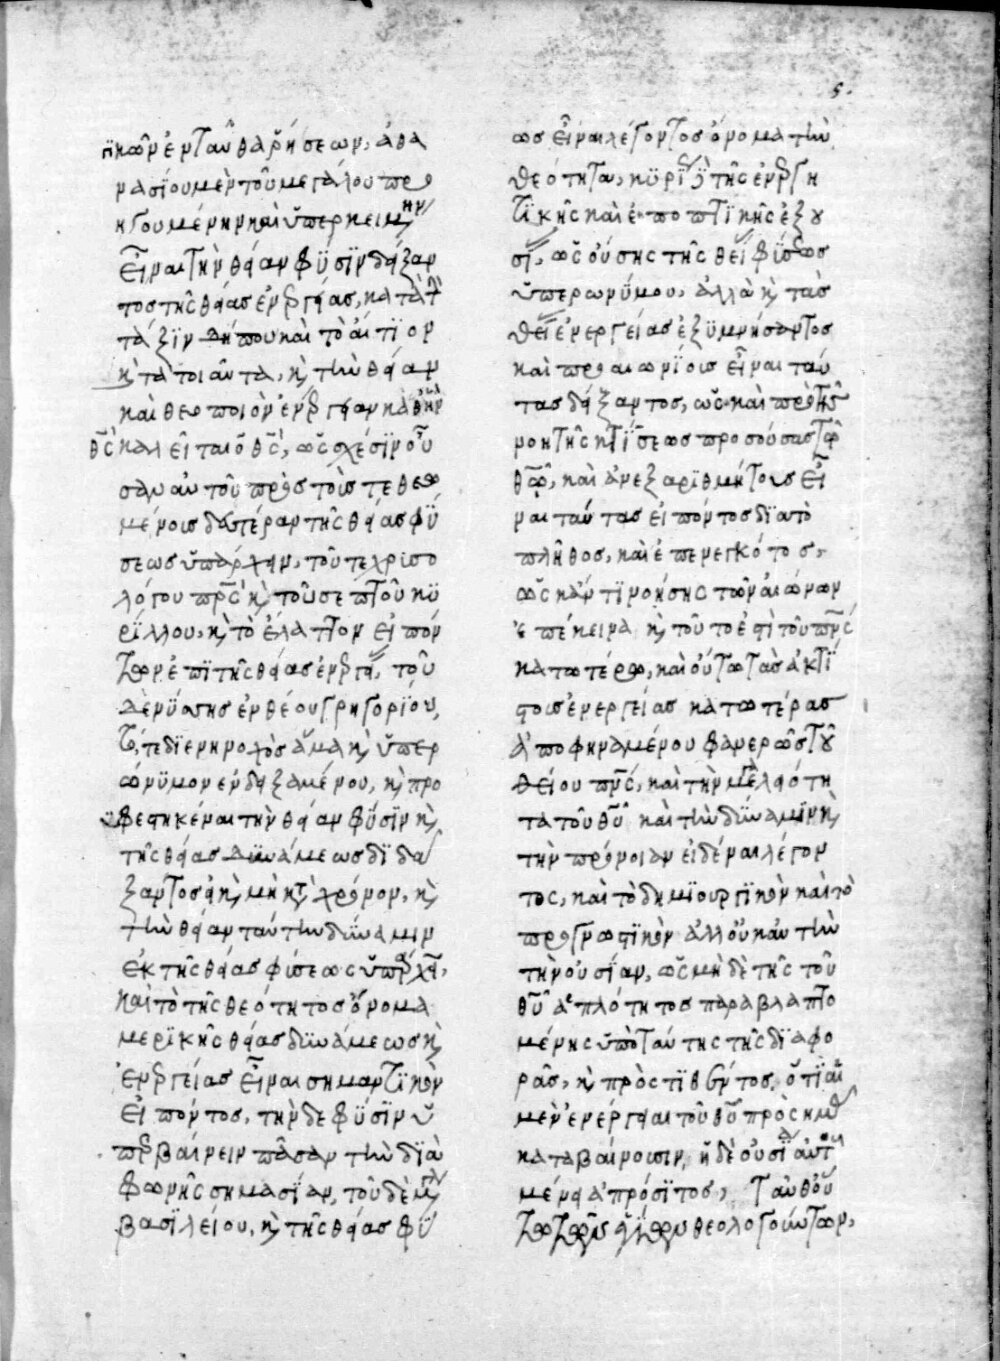 ς.
πικῶν ἐνταῦθα ῥήσεων, ἀθα
νασίου μὲν τοῦ μεγάλου προ
ηγουμένην καὶ ὑπερκειμένην
εἶναι τὴν θείαν φύσιν δείξαν
τος τῆς θείας ἐνεργείας, κατὰ
τάξιν δήπου καὶ τὸ αἴτιον
κ τὰ τοιαῦτα, κ τὴν θείαν
καὶ θεοποιὸν ἐνέργειαν καθ' ἣν
θς καλεῖται ὁ θς, ὡς σχέσιν οὖ
σαν αὐτοῦ πρὸς τοὺς τεθεω
μένοις δευτέραν τῆς θείας φύ
σεως ὑπάρχειν, τοῦ τε χρυσο
λόγου πρς κ τοῦ σεπτοῦ κυ
ρίλλου, κ τὸ ἐλαττον εἰπόν
των ἐπὶ τῆς θείας ἐνεργεία, τοῦ
δὲ νύσης ἐνθέου γρηγορίου,
τό, τε διενηνοχὸς ἅμα κ ὑπερ
ώνυμον ἐνδειξαμένου, κ προ
φεστηκέναι τὴν θείαν φύσιν κ
τῆς θείας δυνάμεως διδά
ξαντος ἀεὶ κ μὴ κτ χρόνον, κ
τὴν θείαν ταύτην δύναμιν
ἐκ τῆς θείας φύσεως ὑπάρχειν,
καὶ τὸ τῆς θεότητος ὄνομα
μερικῆς θείας δυνάμεως κ
ἐνεργείας εἶναι σημαντικὸν
εἰπόντος, τὴν δὲ φύσιν ὑ
περβαίνειν πᾶσαν τὴν διὰ
φωνῆς σημασίαν, τοῦ δὲ
βασιλείου, κ τῆς θείας φύ
ως εἶναι λέγοντος ὄνομα τὴν
θεότητα, κυρίου τῆς ἐνεργη
τικῆς καὶ ἐποπτικῆς ἐξου
σί, ὡς οὔσης τῆς θεί φύσεως
ὑπερωνύμου, ἀλλὰ κ τὰς
θεί ἐνεργείας ἐξυμνήσαντος
καὶ προαιωνίοις εἶναι ταύ
τας δείξαντος, ὡς καὶ πρὸ τῆς
μον τῆς κτίσεως προσούσας τῷ
θῷ, καὶ ἀνεξαριθμήτους εἶ
ναι ταύτας εἰπόντος διὰ τὸ
πλῆθος, καὶ ἐπενεγκότος,
ὡς κἀν τί νοήσῃς τῶν αἰώνων
ἐπέκεινα κ τοῦτο ἐστὶ τοῦ πνς
κατωτέρω, καὶ οὕτω τὰς ἀκτί
στοις ἐνεργείας κατωτέρας
ἀποφηναμένου φανερῶς τοῦ
θείου πρς, καὶ τὴν μεγαλειότη
τα τοῦ θυ καὶ τὴν δύναμιν κ
τὴν πρόνοιαν εἰδέναι λέγον
τος, καὶ τὸ δημιουργικὸν καὶ τὸ
προγνωστικὸν ἀλλ' οὐκ αὐτὴν
τὴν οὐσίαν, ὡς μηδὲ τῆς τοῦ
θυ ἁπλότητος παραβλαπτο
μένης ὑπὸ ταύτης τῆς διαφο
ρᾶς, κ πρὸς τούτος, ὅτι αἱ
μὲν ἐνέργειαι τοῦ θυ πρὸς ημ
καταβαίνουσιν, ἡ δὲ οὐσία αὐτ
μένει ἀπρόσιτος, ταῦθ' οὕ
τω θεολογούντων,